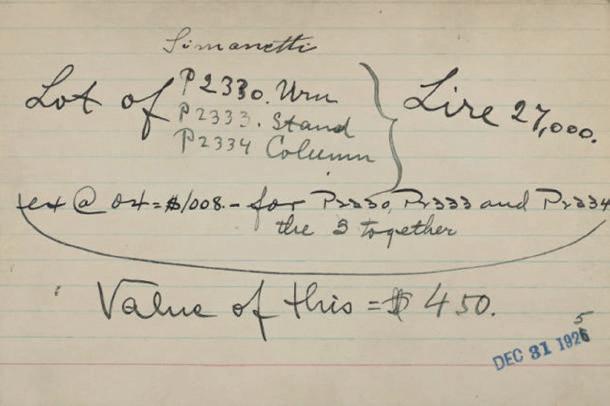 Simonetti
Lot of P2330. Urn
P2333. Stand
P2334 Column
Lire 27,000.
ex @ 04 = $1008.- for P2330, P2333 and P2334
the 3 together
Value of this = $450.
DEC 31 1926
5